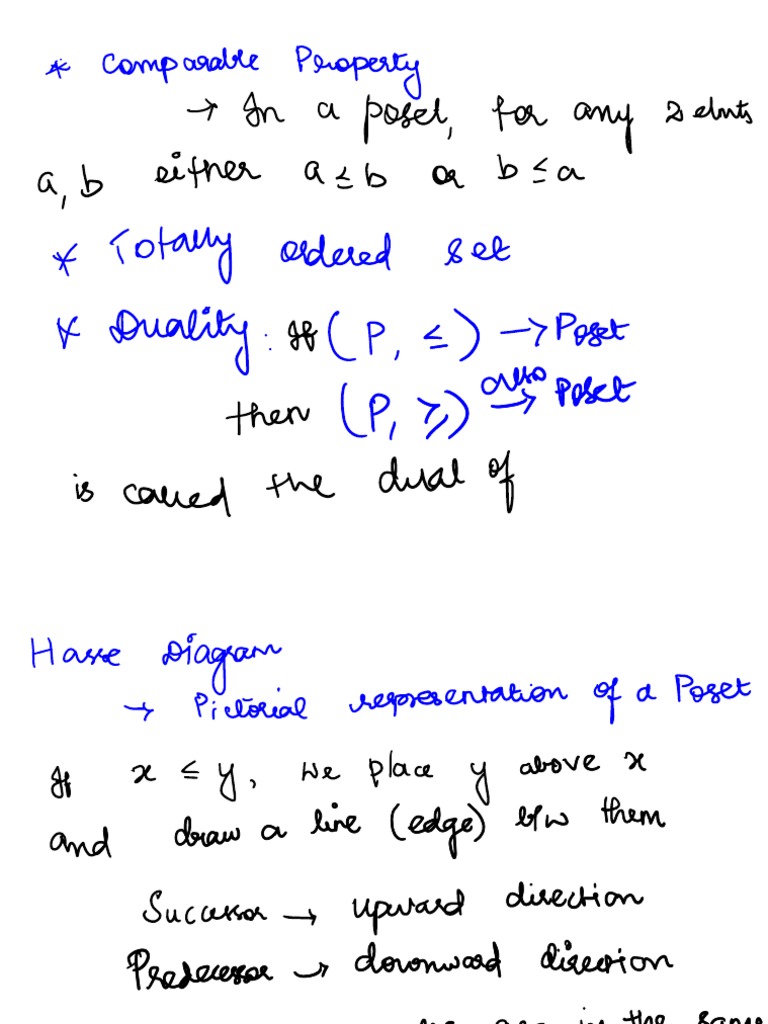 * Comparable Property
→ In a poset, for any 2 elmts
a, b either a ≤ b or b ≤ a
* Totally ordered set
* Duality : If (P, ≤) → Poset
then (P, ≥) also → Poset
is called the dual of
Hasse Diagram
→ Pictorial representation of a Poset
If x ≤ y, we place y above x
and draw a line (edge) b/w them
Successor → upward direction
Predecessor → downward direction
are in the same